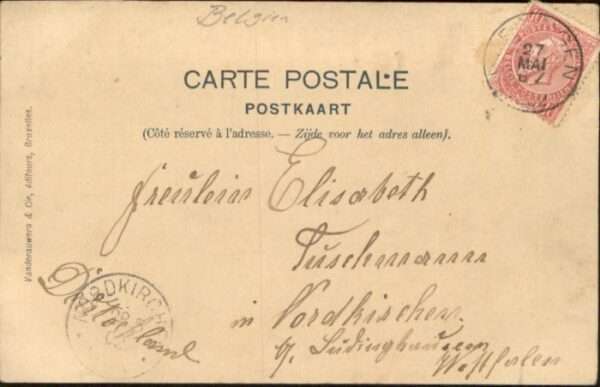 Belgien
27
MAI
CARTE POSTALE
POSTKAART
(Côté réservé à l'adresse. — Zijde voor het adres alleen).
Vanderauwera & Cie, éditeurs, Bruxelles.
Freulein Elisabeth
Tuschmann
in Nordkirchen
b/. Lüdinghausen
Westfalen
Deutschland